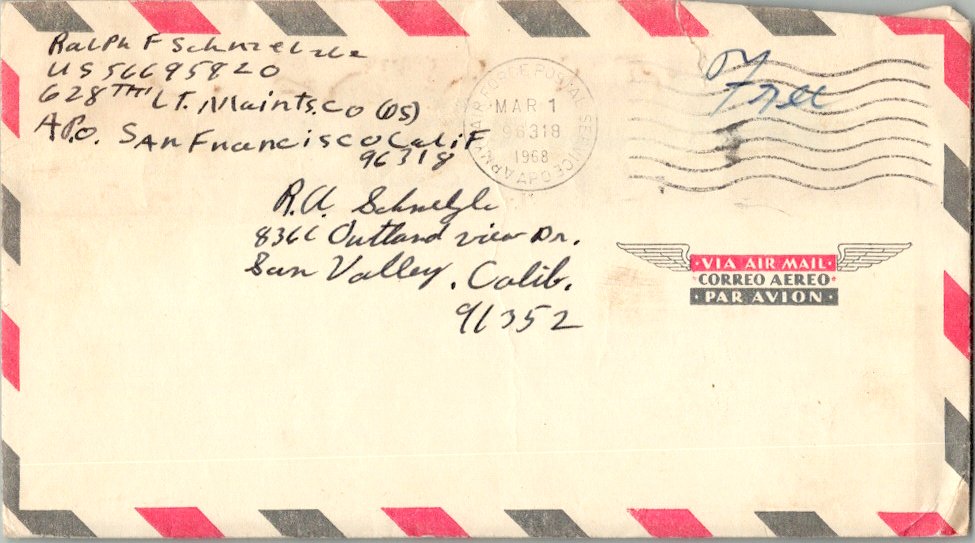 Ralph F Schnelzle
US56695820
628TH LT. Maints.Co (DS)
APO. San Francisco Calif
96318
ARMY & AIR FORCE POSTAL SERVICE
MAR 1
96318
1968
APO
Free
R.A. Schnelzle
8366 Outland view Dr.
Sun Valley, Calif.
91352
VIA AIR MAIL
CORREO AEREO
PAR AVION